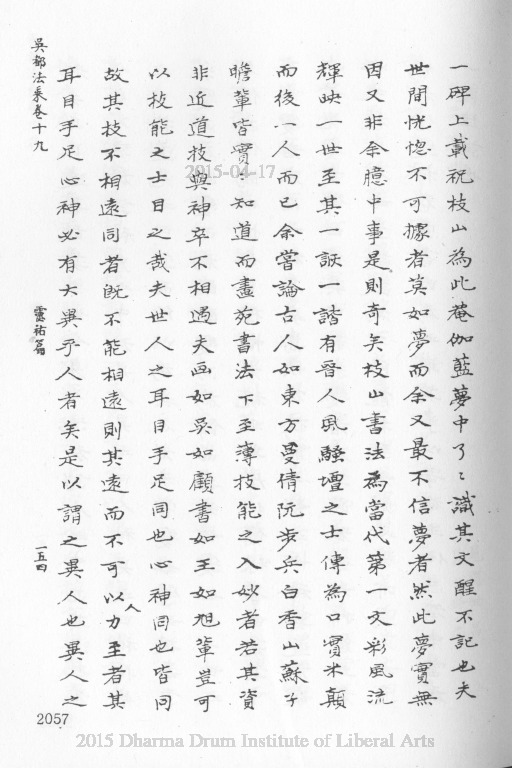 一碑上載祝枝山為此菴伽藍夢中了〻識其文醒不記也夫
世間恍惚不可據者莫如夢而余又最不信夢者然此夢實無
因又非余臆中事是則奇矣枝山書法為當代第一文彩風流
輝映一世至其一詼一諧有晉人風騷壇之士傳為口實米顛
而後一人而已余嘗論古人如東方曼倩阮步兵白香山蘇子
瞻輩皆實〻知道而畫苑書法下至薄技能之入妙者若其資
非近道技與神卒不相遇夫画如吳如顧書如王如旭輩豈可
以技能之士目之哉夫世人之耳目手足同也心神同也皆同
故其技不相遠同者既不能相遠則其遠而不可以力至者其
人
耳目手足心神必有大異乎人者矣是以謂之異人也異人之
吳都法乘卷十九
靈祐篇
一五四
2057
2015-04-17
2015 Dharma Drum Institute of Liberal Arts